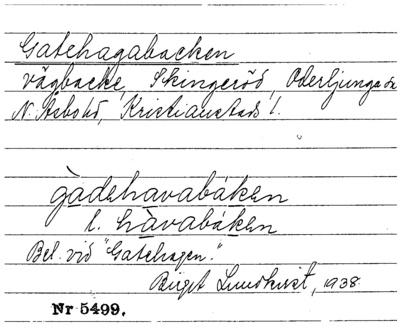 Gatehagabacken
vägbacke, Skingeröd, Oderljunga sn
N. Åsbo hd, Kristianstads l.
gàdehavabáken
l. hàvabáken
Bel. vid "Gatehagen."
Birgit Lundkvist, 1938.
Nr 5499.